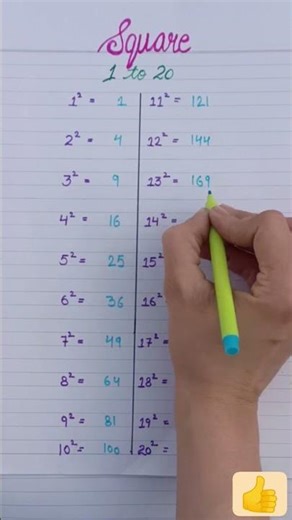 Square
1 to 20
1² = 1
2² = 4
3² = 9
4² = 16
5² = 25
6² = 36
7² = 49
8² = 64
9² = 81
10² = 100
11² = 121
12² = 144
13² = 169
14² =
15²
16²
17² =
18² =
19² =
20² =